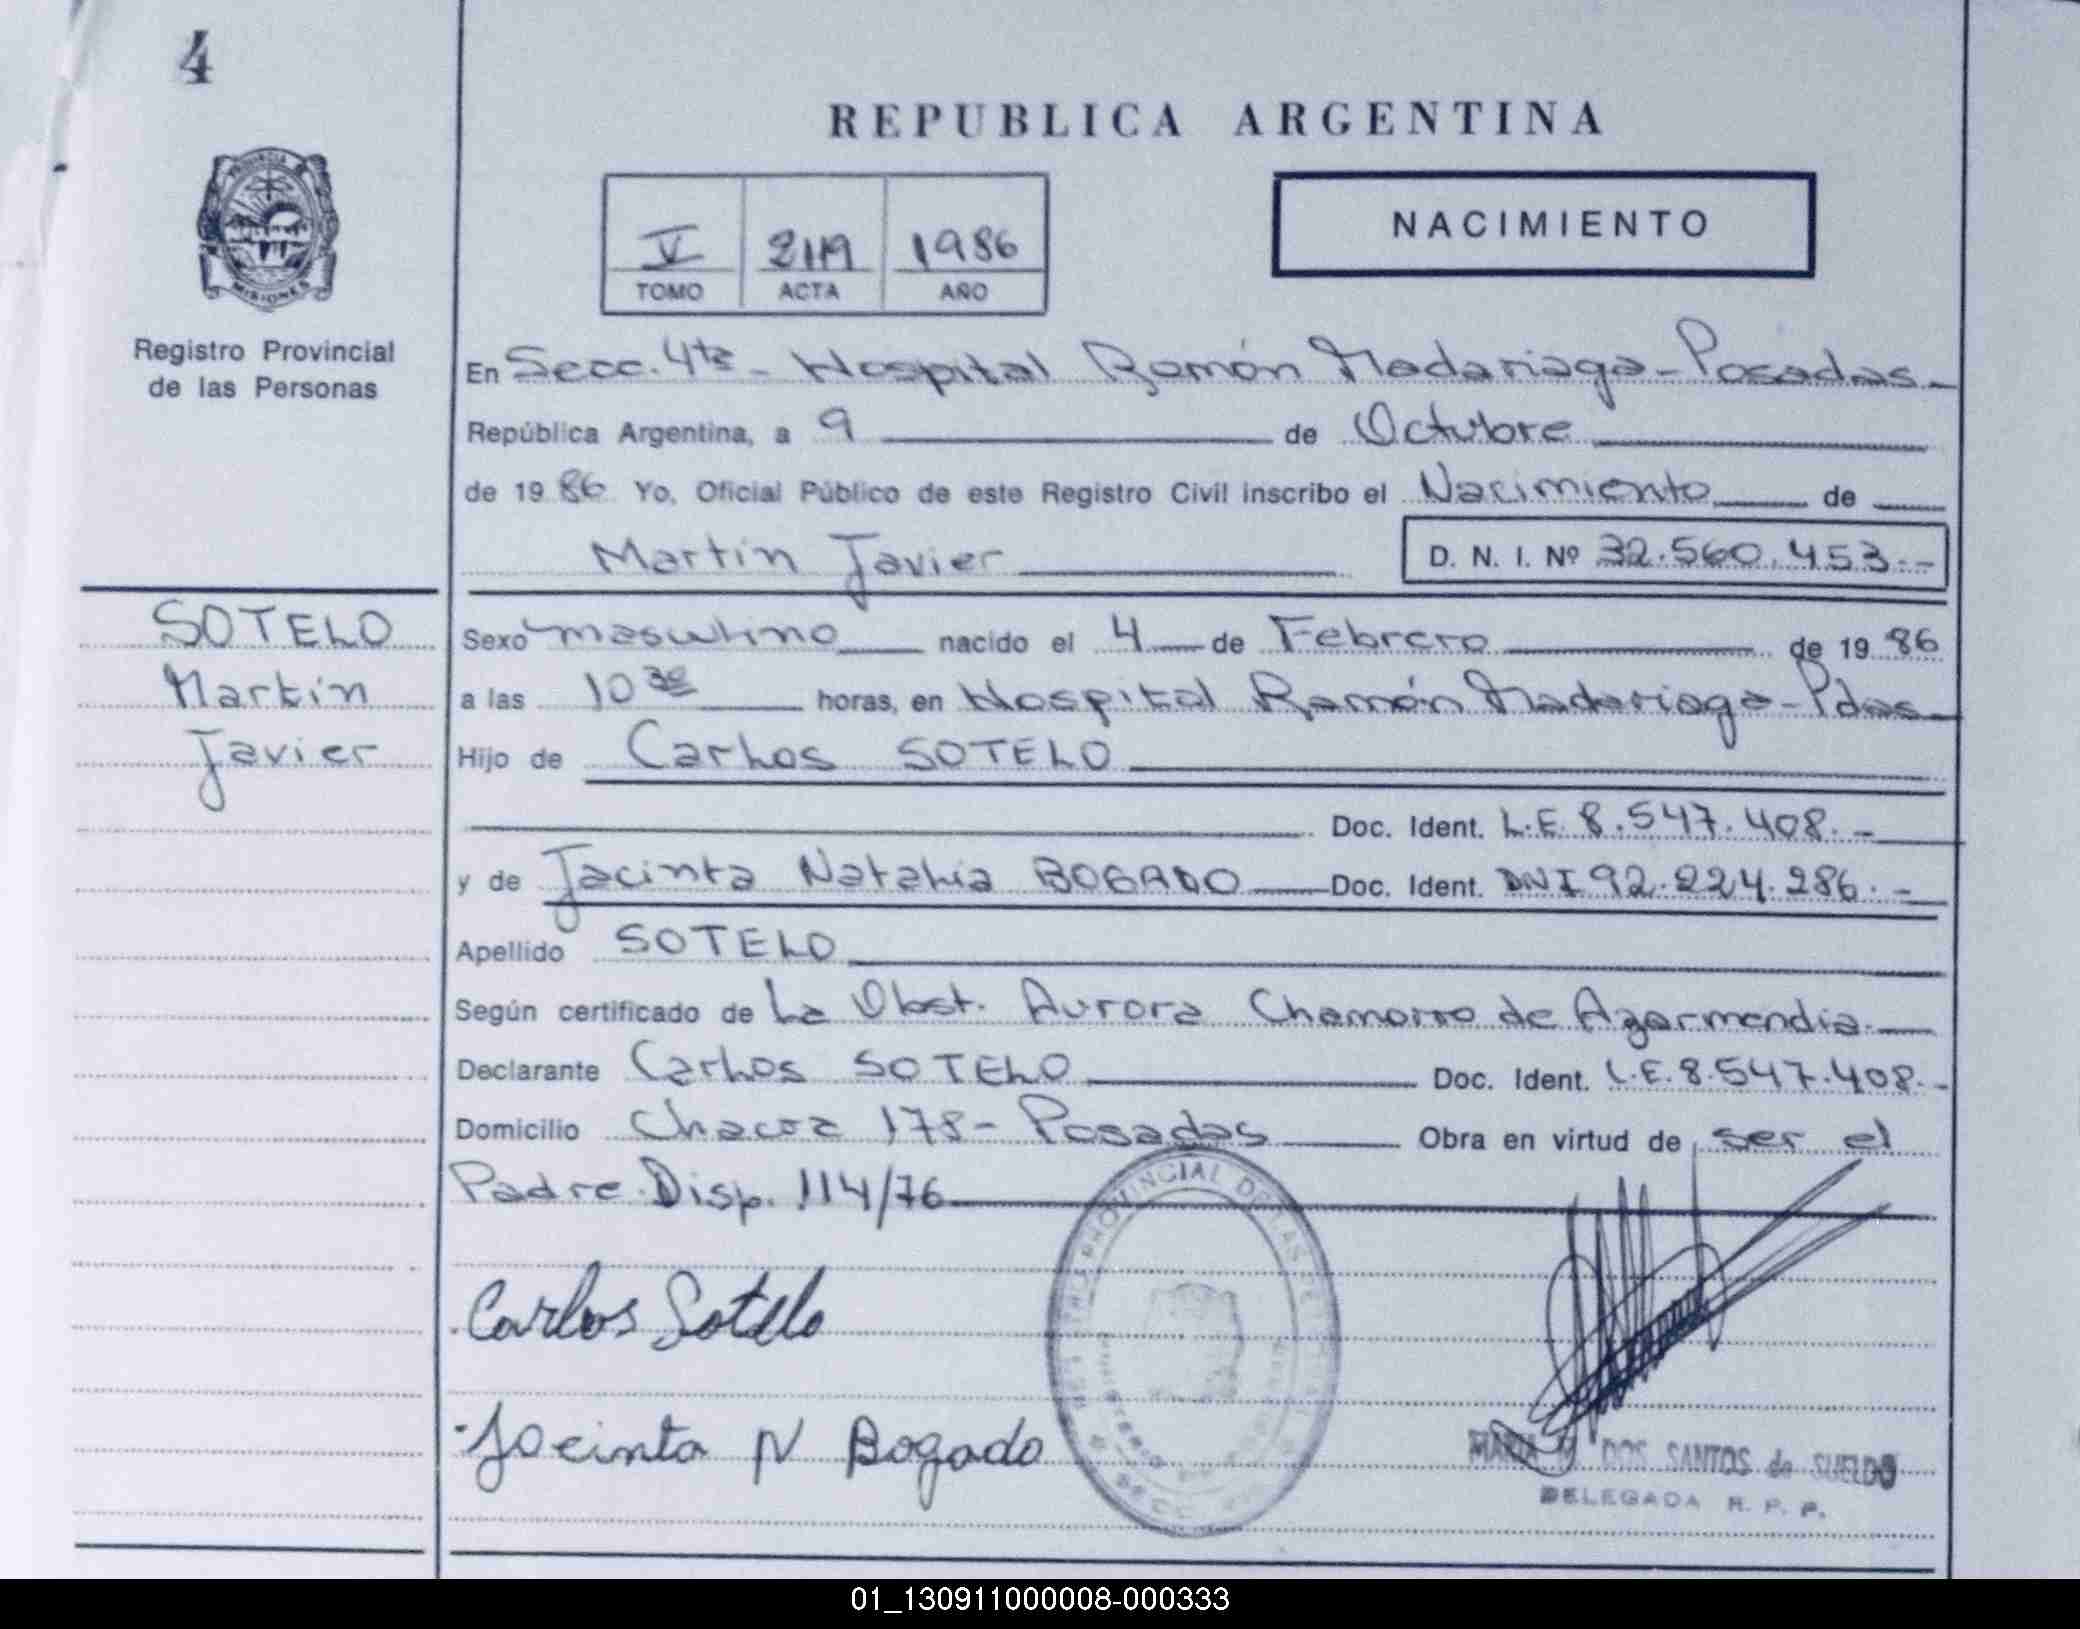 4
REPUBLICA ARGENTINA
PROVINCIA DE
MISIONES
V 2119 1986
TOMO ACTA AÑO
NACIMIENTO
Registro Provincial
de las Personas
En Secc. 4ta - Hospital Ramón Madariaga - Posadas -
República Argentina, a 9 de Octubre
de 1986 Yo, Oficial Público de este Registro Civil inscribo el Nacimiento de
Martín Javier D. N. I. Nº 32.560.453.-
SOTELO
Martín
Javier
Sexo masculino nacido el 4 de Febrero de 1986
a las 10 30 horas, en Hospital Ramón Madariaga - Pdas -
Hijo de Carlos SOTELO
Doc. Ident. L.E. 8.547.408. -
y de Jacinta Natalia BOGADO Doc. Ident. DNI 92.224.286. -
Apellido SOTELO
Según certificado de La Obst. Aurora Chamorro de Azarmendia
Declarante Carlos SOTELO Doc. Ident. L.E. 8.547.408. -
Domicilio Chacra 178 - Posadas Obra en virtud de ser el
Padre. Disp. 114/76
PROVINCIAL DE LAS
Carlos Sotelo
Jacinta N Bogado
MARIA DOS SANTOS de SUELDO
DELEGADA R. P. P.
01_130911000008-000333